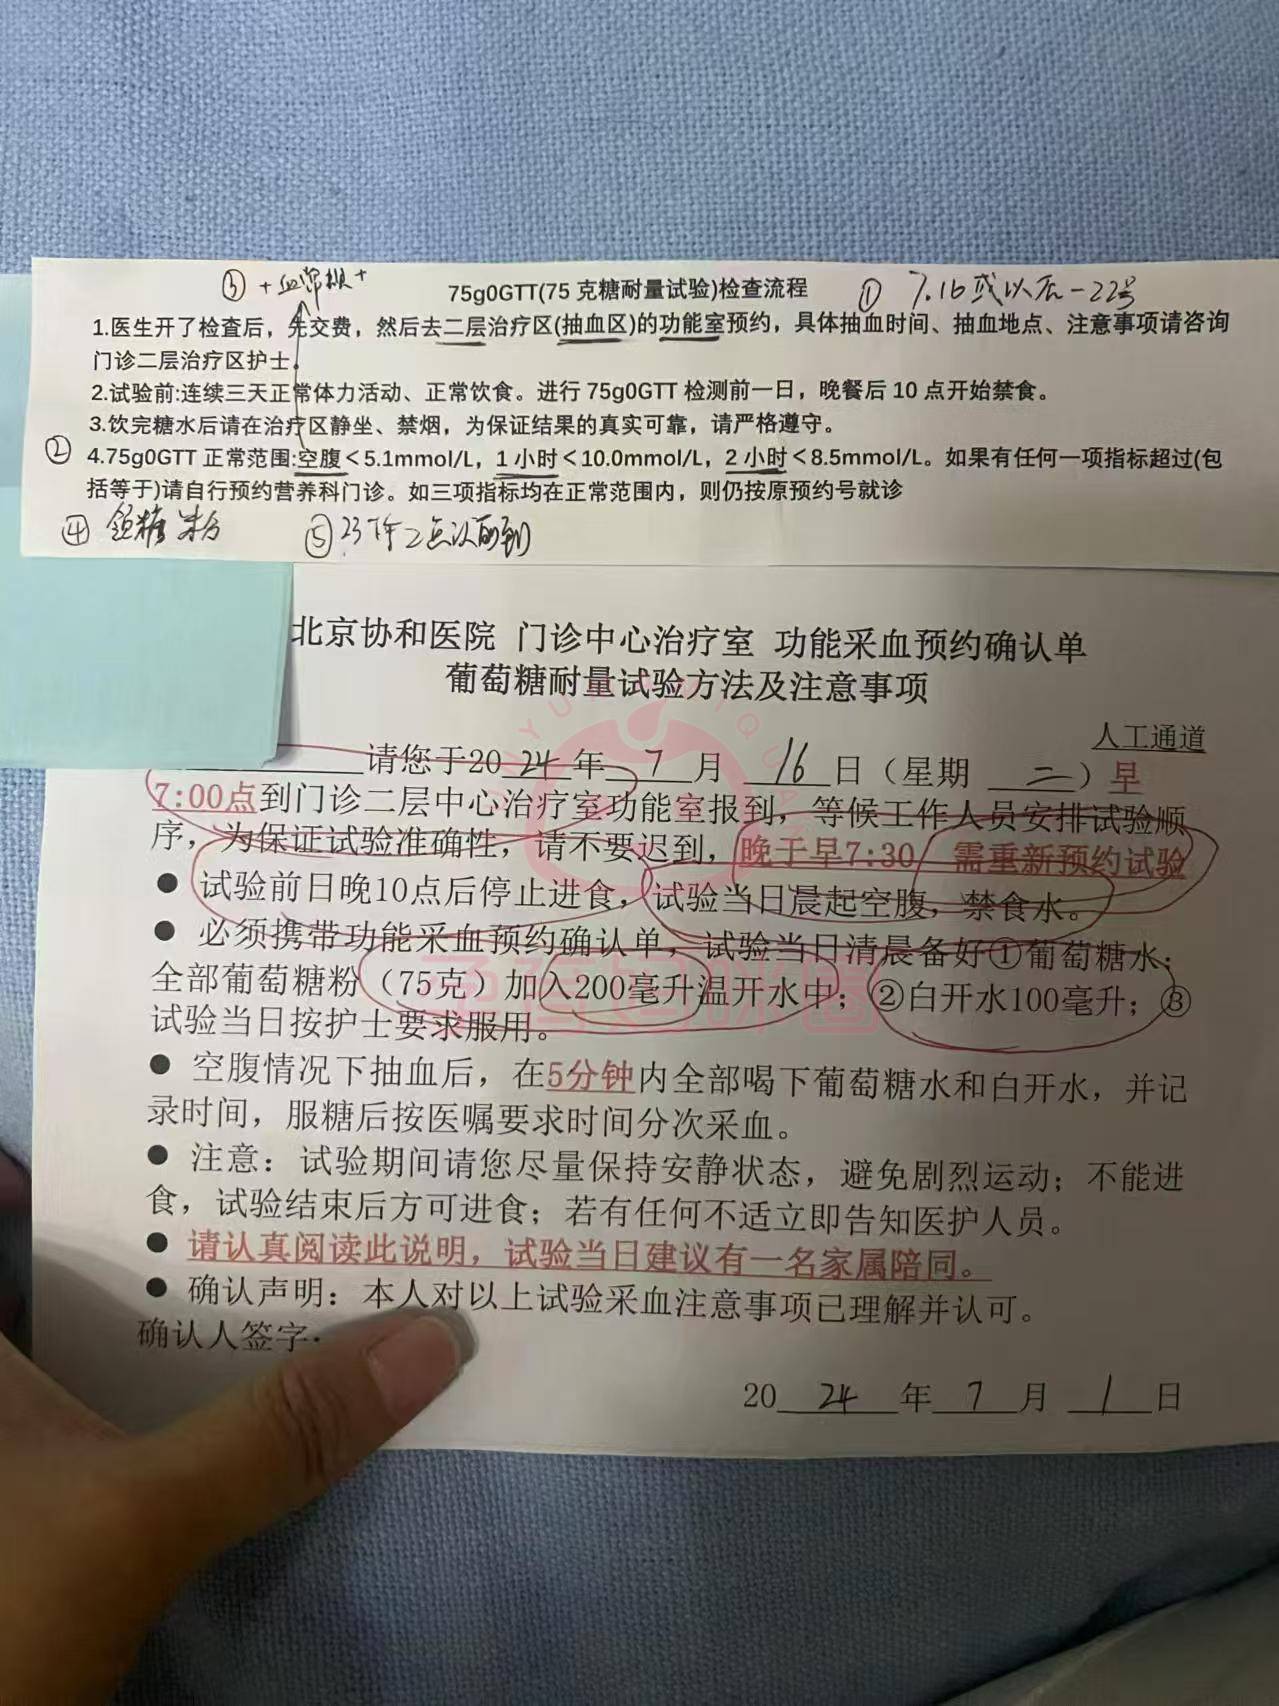 ③ +血常规+
75g0GTT(75克糖耐量试验)检查流程
① 7.16或以后-22号
1.医生开了检查后，先交费，然后去二层治疗区(抽血区)的功能室预约，具体抽血时间、抽血地点、注意事项请咨询
门诊二层治疗区护士。
2.试验前:连续三天正常体力活动、正常饮食。进行75g0GTT检测前一日，晚餐后10点开始禁食。
3.饮完糖水后请在治疗区静坐、禁烟，为保证结果的真实可靠，请严格遵守。
② 4.75g0GTT正常范围:空腹<5.1mmol/L，1小时<10.0mmol/L，2小时<8.5mmol/L。如果有任何一项指标超过(包
括等于)请自行预约营养科门诊。如三项指标均在正常范围内，则仍按原预约号就诊
④ 领糖粉
⑤ 23下午2点以前到
北京协和医院 门诊中心治疗室 功能采血预约确认单
葡萄糖耐量试验方法及注意事项
人工通道
请您于2024年7月16日（星期二）早
7:00点到门诊二层中心治疗室功能室报到，等候工作人员安排试验顺
序，为保证试验准确性，请不要迟到，晚于早7:30，需重新预约试验
● 试验前日晚10点后停止进食，试验当日晨起空腹，禁食水。
● 必须携带功能采血预约确认单，试验当日清晨备好①葡萄糖水：
全部葡萄糖粉（75克）加入200毫升温开水中；②白开水100毫升；③
试验当日按护士要求服用。
● 空腹情况下抽血后，在5分钟内全部喝下葡萄糖水和白开水，并记
录时间，服糖后按医嘱要求时间分次采血。
● 注意：试验期间请您尽量保持安静状态，避免剧烈运动；不能进
食，试验结束后方可进食；若有任何不适立即告知医护人员。
● 请认真阅读此说明，试验当日建议有一名家属陪同。
● 确认声明：本人对以上试验采血注意事项已理解并认可。
确认人签字：
2024年7月1日